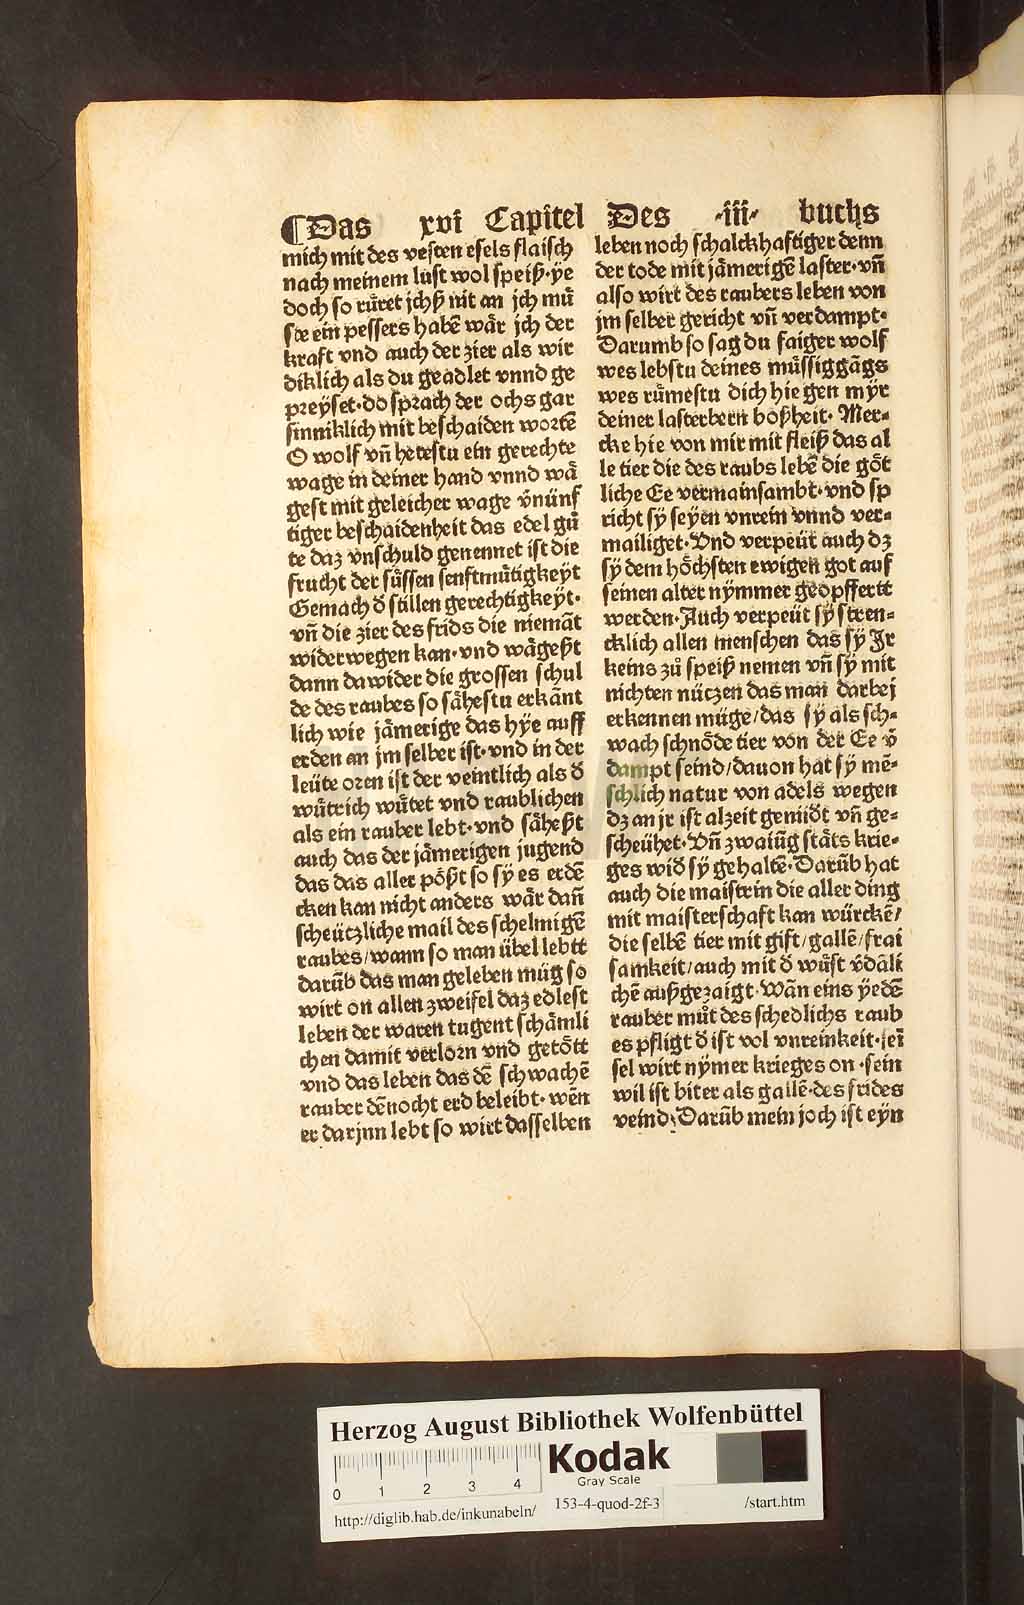 ¶Das xvi Capitel Des ·iii· buchs
mich mit des vesten esels flaisch
nach meinem lust wol speiß·ÿe
doch so rüret jchß nit an jch mů
ste ein pessers habē wär jch der
kraft vnd auch der zier als wir
diklich als du geadlet vnnd ge
preÿset·do sprach der ochs gar
sinniklich mit beschaiden wortē
O wolf vn̄ hetestu ein gerechte
wage in deiner hand vnnd wä
gest mit geleicher wage v̄nünf
tiger beschaidenheit das edel gů
te daz vnschuld genennet ist die
frucht der süssen senftmůtigkeÿt
Gemach d̄ stillen gerechtigkeÿt·
vn̄ die zier des frids die niemāt
widerwegen kan·vnd wägeßt
dann dawider die grossen schul
de des raubes so sähestu erkānt
lich wie jämerige das hÿe auff
erden an jm selber ist·vnd in der
leüte oren ist der veintlich als d̄
wütrich wütet vnd raublichen
als ein rauber lebt·vnd säheßt
auch das der jämerigen jugend
das das aller pößt so sÿ es erdē
cken kan nicht anders wär dan̄
scheützliche mail des schelmigē
raubes/wann so man übel lebtt
darūb das man geleben müg so
wirt on allen zweifel daz edlest
leben der waren tugent schämli
chen damit verlorn vnd getött
vnd das leben das dē schwachē
rauber dēnocht erd beleibt·wēn
er darjnn lebt so wirt dasselben
leben noch schalckhaftiger denn
der tode mit jämerigē laster·vn̄
also wirt des raubers leben von
jm selber gericht vn̄ verdampt·
Darumb so sag du faiger wolf
wes lebstu deines müssiggāgs
wes růmestu dich hie gen mÿr
deiner lasterbern boßheit· Mer-
cke hie von mir mit fleiß das al
le tier die des raubs lebē die göt
liche Ee vermainsambt·vnd sp
richt sÿ seÿen vnrein vnnd ver-
mailiget·Vnd verpeüt auch dz
sÿ dem höchsten ewigen got auf
seinen alter nÿmmer geopffertt
werden·Auch verpeüt sÿ stren-
cklich allen menschen das sÿ Jr
keins zů speiß nemen vn̄ sÿ mit
nichten nüczen das man darbej
erkennen müge/das sÿ als sch-
wach schnöde tier von der Ee v̄
dampt seind/dauon hat sÿ mē-
schlich natur von adels wegen
dz an jr ist alzeit genüdt vn̄ ge-
scheühet·Vn̄ zwaiūg stäts krie-
ges wid̄ sÿ gehaltē·Darūb hat
auch die maistrin die aller ding
mit maisterschaft kan würckē/
die selbē tier mit gift/gallē/frai
samkeit/auch mit d̄ wüst v̄dāli
chē außgezaigt·Wān eins ÿedē
rauber můt des schedlichs raub
es pfligt d̄ ist vol vnreinkeit·sei
sel wirt nÿmer krieges on·sein
wil ist biter als gallē·des frides
veind·Darūb mein joch ist eÿn
Herzog August Bibliothek Wolfenbüttel
0 1 2 3 4
Kodak
Gray Scale
http://diglib.hab.de/inkunabeln/ 153-4-quod-2f-3 /start.htm